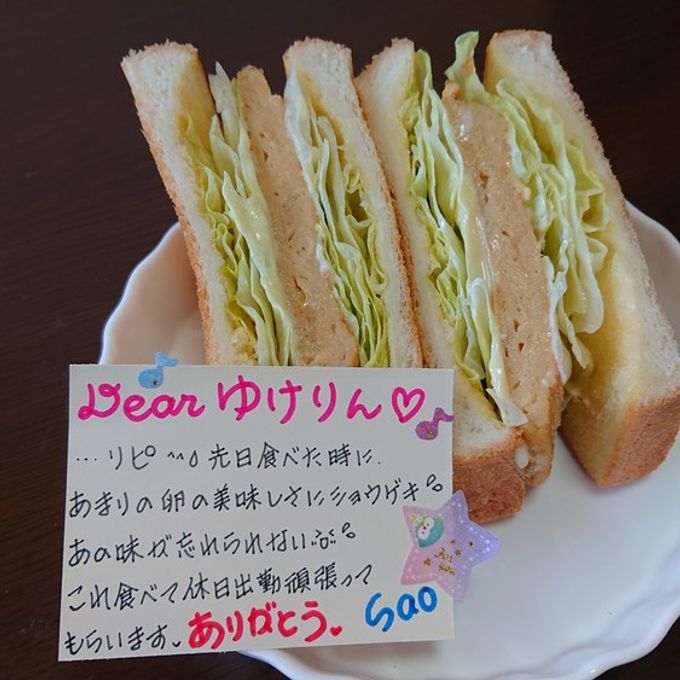 Dear ゆけりん♡
…リピ 先日食べた時に、
あまりの卵の美味しさにショウゲキ。
あの味が忘れられない
これ食べて休日出勤頑張って
もらいます。ありがとう。 Sao